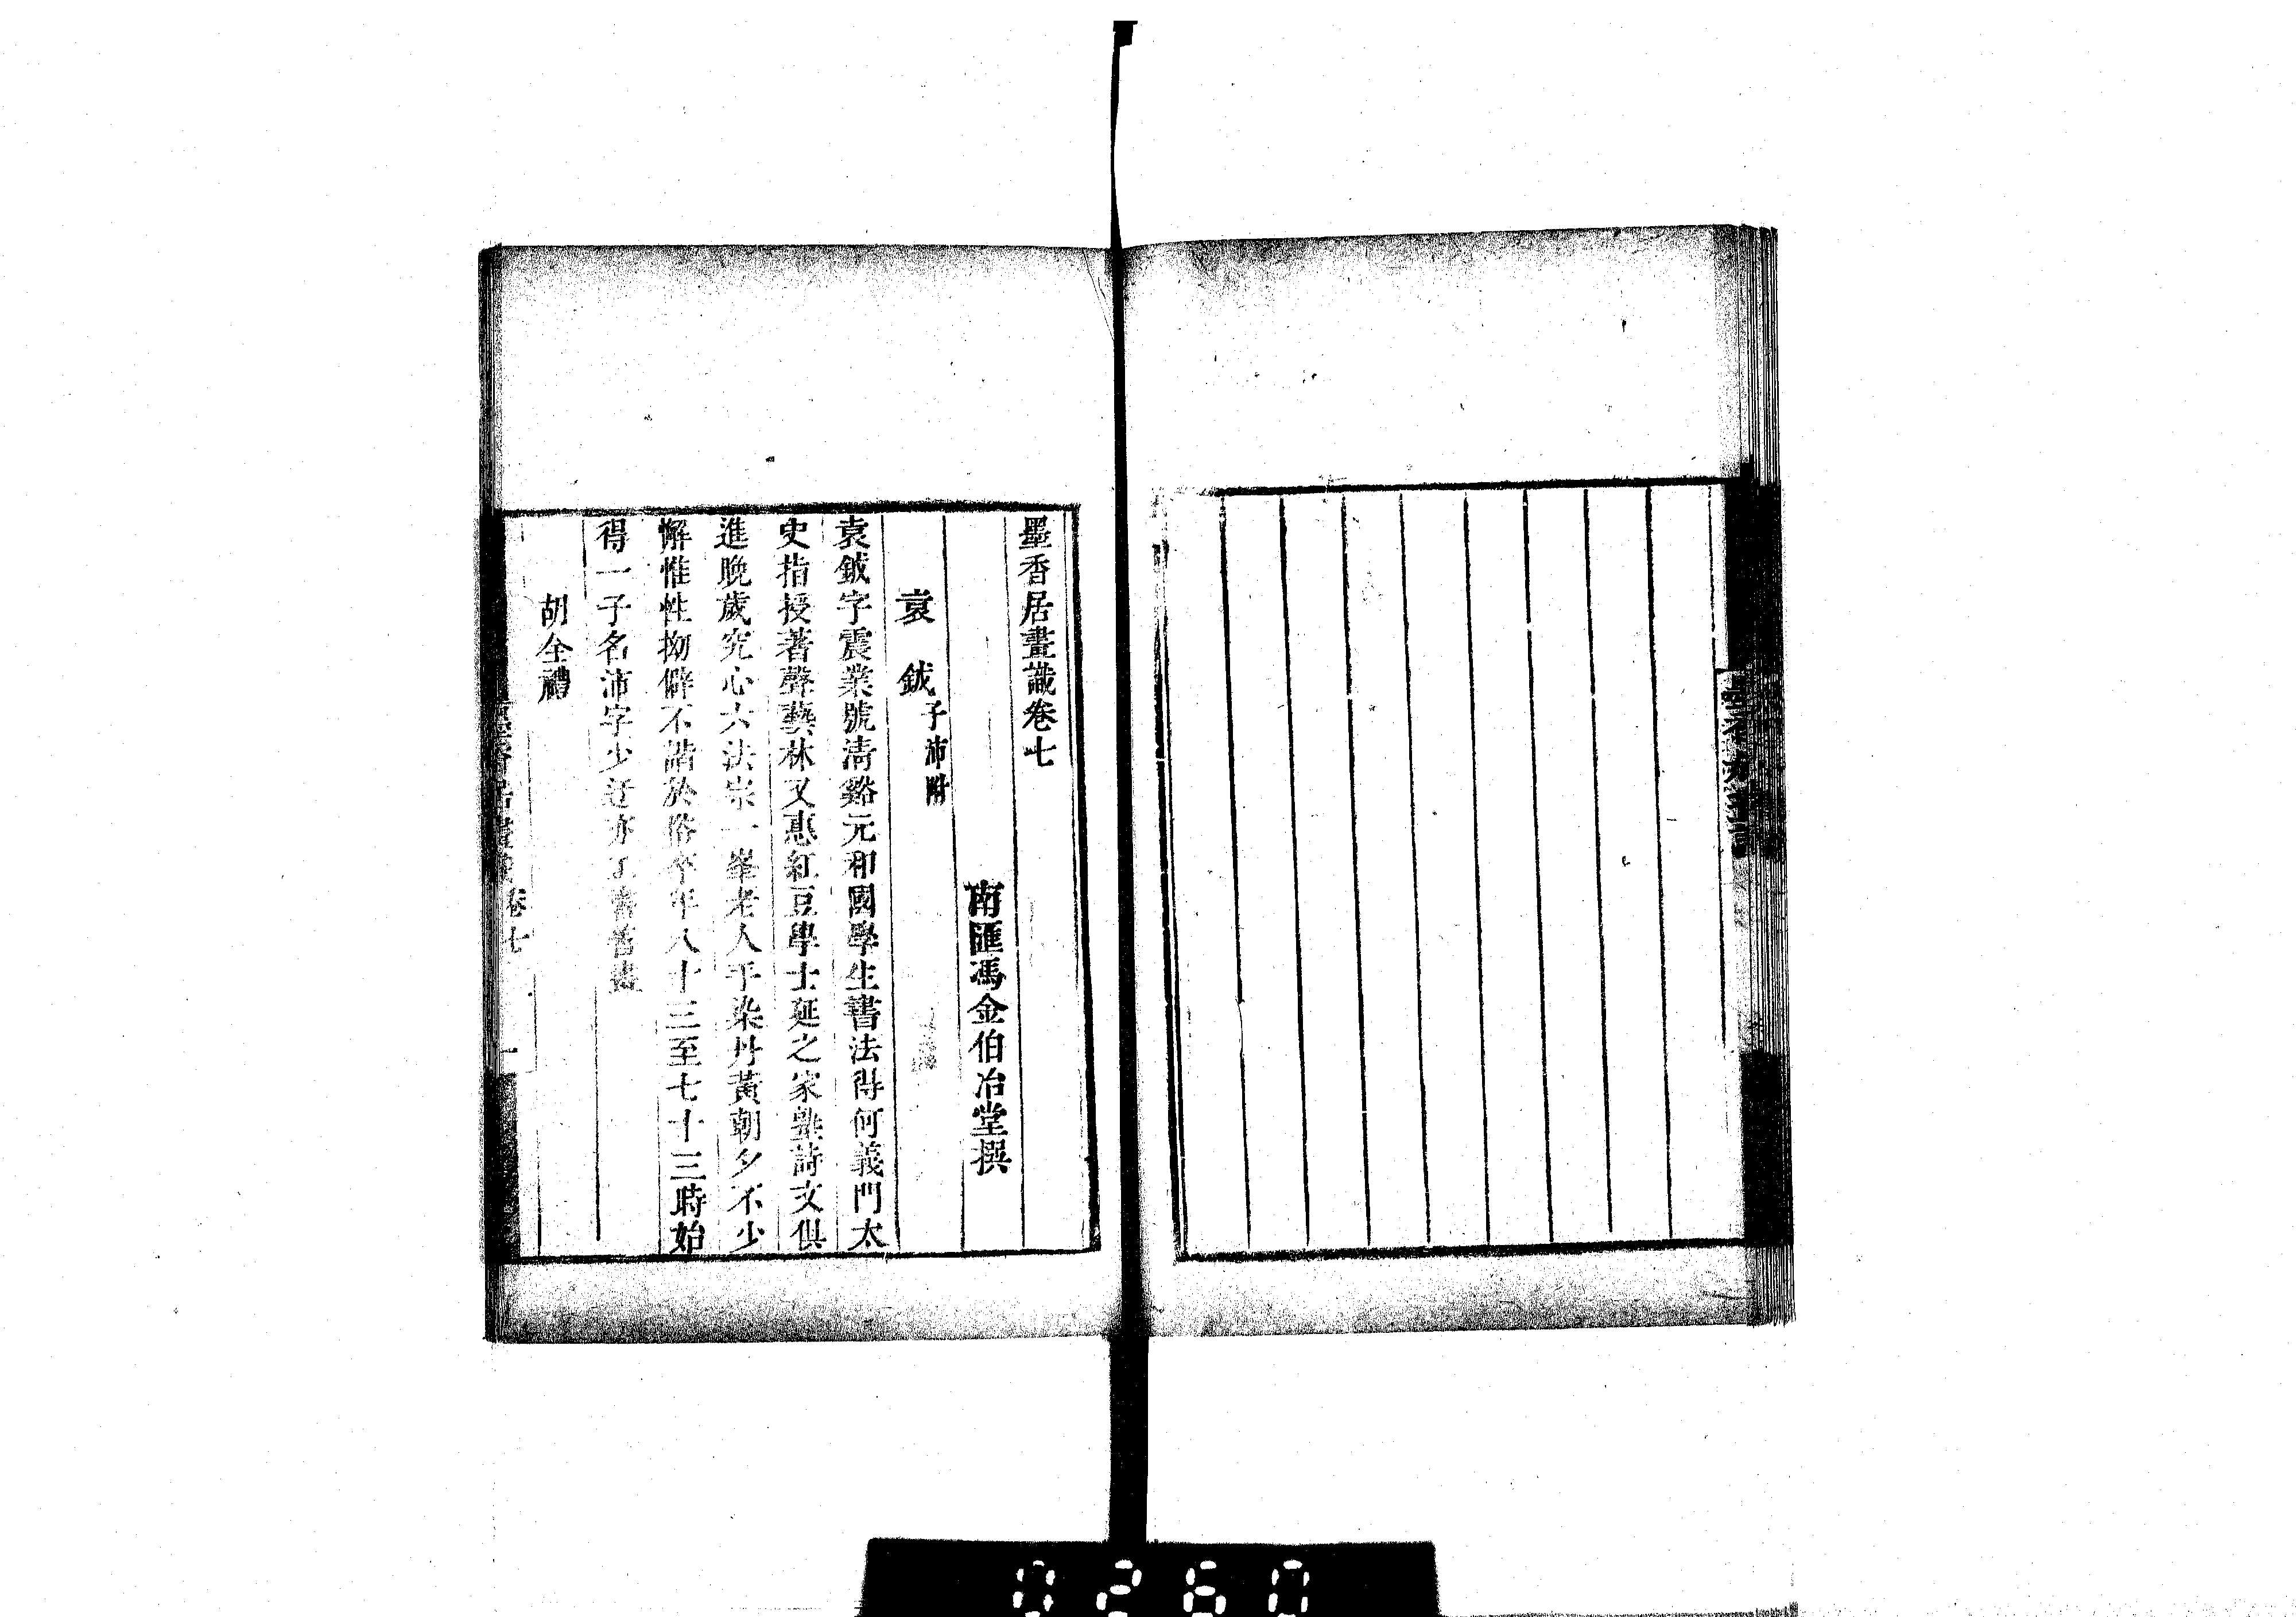 墨香居畫識卷七
南匯馮金伯冶堂撰
袁鉞子沛附
袁鉞字震業號清谿元和國學生書法得何義門太
史指授著聲藝林又惠紅豆學士延之家塾詩文俱
進晚歲究心六法宗一峯老人手染丹黃朝夕不少
懈惟性拗僻不諧於俗卒年八十三至七十三時始
得一子名沛字少迂亦工書善畫
胡全禮
墨香居畫識 卷七 一
墨香居畫識
0260